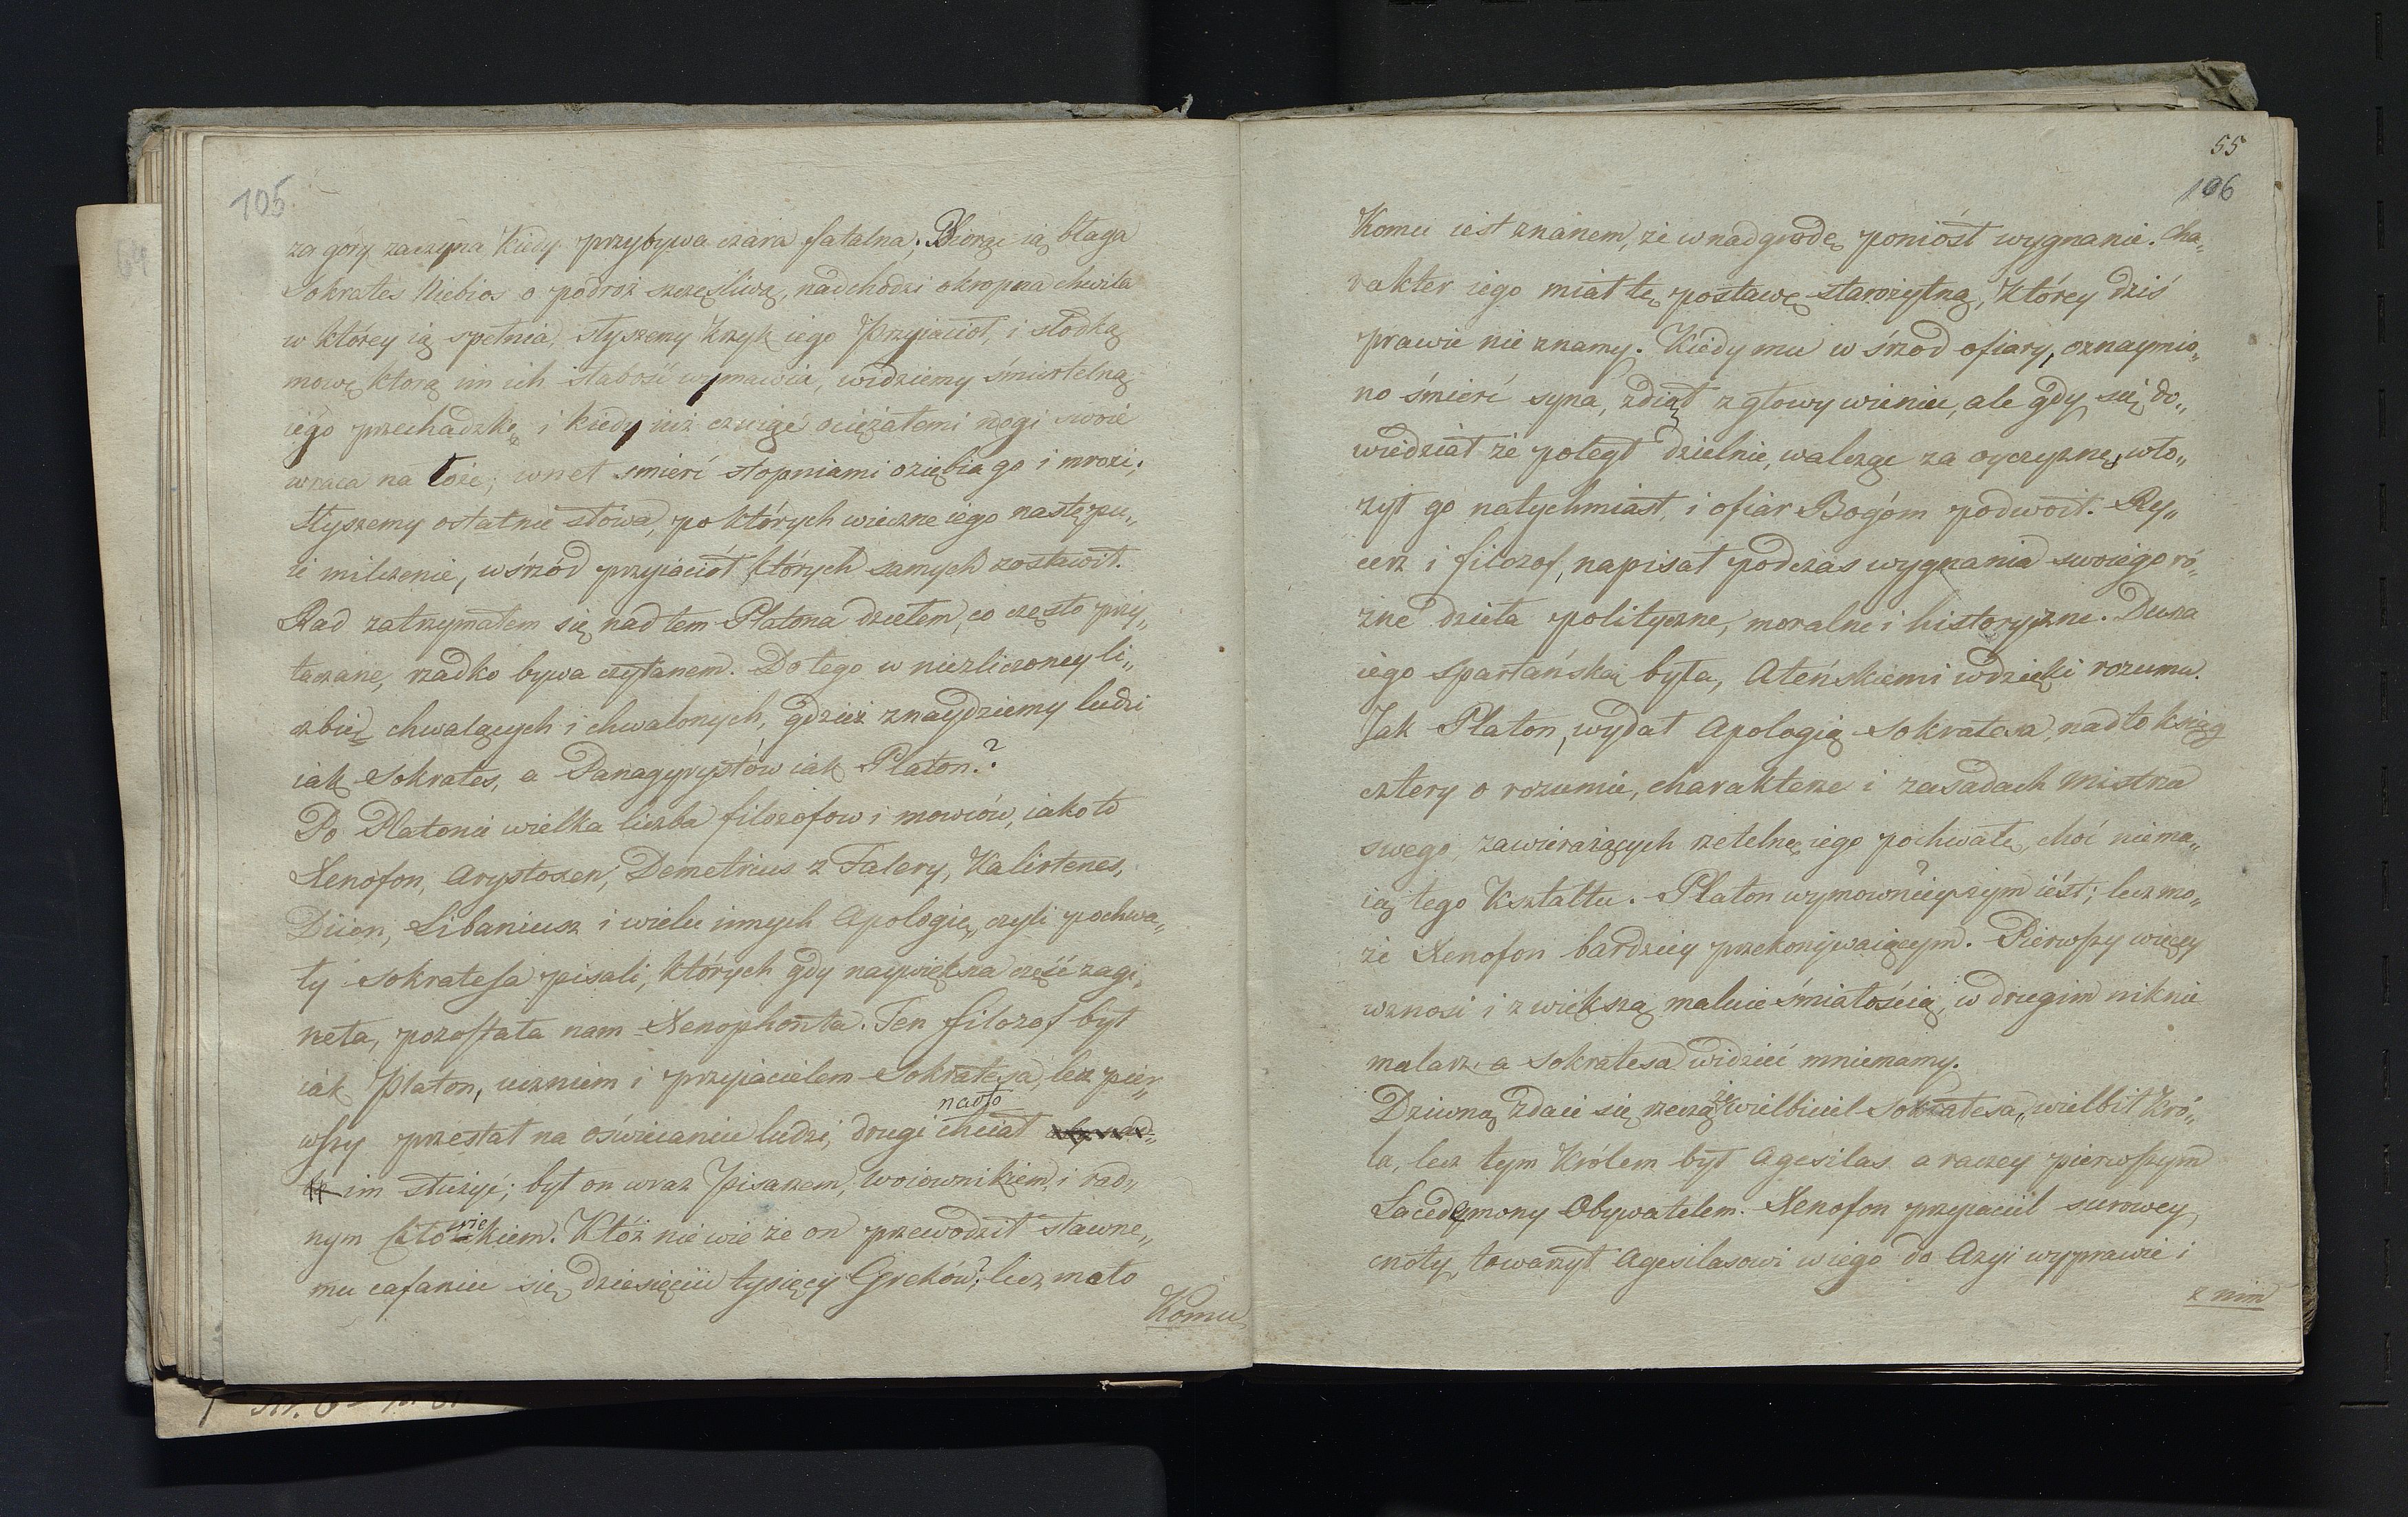 105
za góry zaczyna kiedy przybywa czara fatalna; Biorąc ią błaga
Sokrates Niebios o podroż szczęśliwą, nadchodzi okropna chwila
w którey ią spełnia, słyszemy krzyk iego Przyiacioł, i słodką
mowę ktorą im ich słabość wymawia, widziemy śmiertelną
iego przechadzkę i kiedy iuż czuiąc ociężałemi nogi swoie
wraca na łoże; wnet smierć stopniami oziębia go i mrozi.
Słyszemy ostatnie słowa, po których wieczne iego następu„
ie milczenie, wśrzód przyiaciół których samych zostawił.
Rad zatrzymałem się nad tem Platona dziełem, co często przy„
taczane, rzadko bywa czytanem. Do tego w niezliczoney li„
czbie chwalących i chwalonych, gdzież znaydziemy ludzi
iak Sokrates, a Panagyrystów iak Platon?
Po Platonie wielka liczba filozofow i mowców, iako to
Xenofon, Arystoxen, Demetrius z Falery, Kalistenes,
Diion, Libaniusz i wielu innych Apologię, czyli pochwa„
ły Sokratesa pisali, których gdy naywiększa część zagi„
nęła, pozostała nam Xenophonta. Ten filozof był
iak Platon, uczniem i przyiacielem Sokratesa, lecz pier„
wszy przestał na oświecaniu ludzi, drugi chciał
nadto
im służyć; był on wraz Pisarzem, woiownikiem, i rad„
nym człowiekiem. Któż nie wie że on przewodził sławne„
mu cafaniu się dziesięciu tysięcy Greków?; lecz mało
Komu
55
106
Komu iest znanem, że w nadgrodę poniósł wygnanie. Cha„
rakter iego miał tę postawę starożytną, którey dziś
prawie nie znamy. Kiedy mu w śrzod ofiary, oznaymio„
no śmierć syna, zdiął z głowy wieniec, ale gdy się do„
wiedział że poległ dzielnie, walcząc za oyczyznę, wło„
żył go natychmiast, i ofiar Bogóm podwoił. Ry„
cerz i filozof, napisał podczas wygnania swoiego ró„
żne dzieła polityczne, moralne i historyczne. Dusza
iego Spartańską była, Ateńskiemi wdzięki rozumu.
Jak Platon, wydał Apologią Sokratesa, nadto ksiąg
cztery o rozumie, charakterze i zasadach Mistrza
swego, zawierażących rzetelną iego pochwałę, choć niema„
ią tego kształtu. Platon wymownieyszym iest; lecz mo„
że Xenofon bardziey przekonywaiącym. Pierwszy więcey
wznosi i z większą maluie śmiałością, w drugim niknie
malarz a Sokratesa widzieć mniemamy.
Dziwną zdaie się rzeczą że wielbiciel Sokratesa, wielbił Kró„
la, lecz tym Królem był Agesilas a raczey pierwszym
Lacedęmony Obywatelem. Xenofon przyiaciel surowey
cnoty, towarzył Agesilasowi w iego do Azyi wyprawie i
z nim